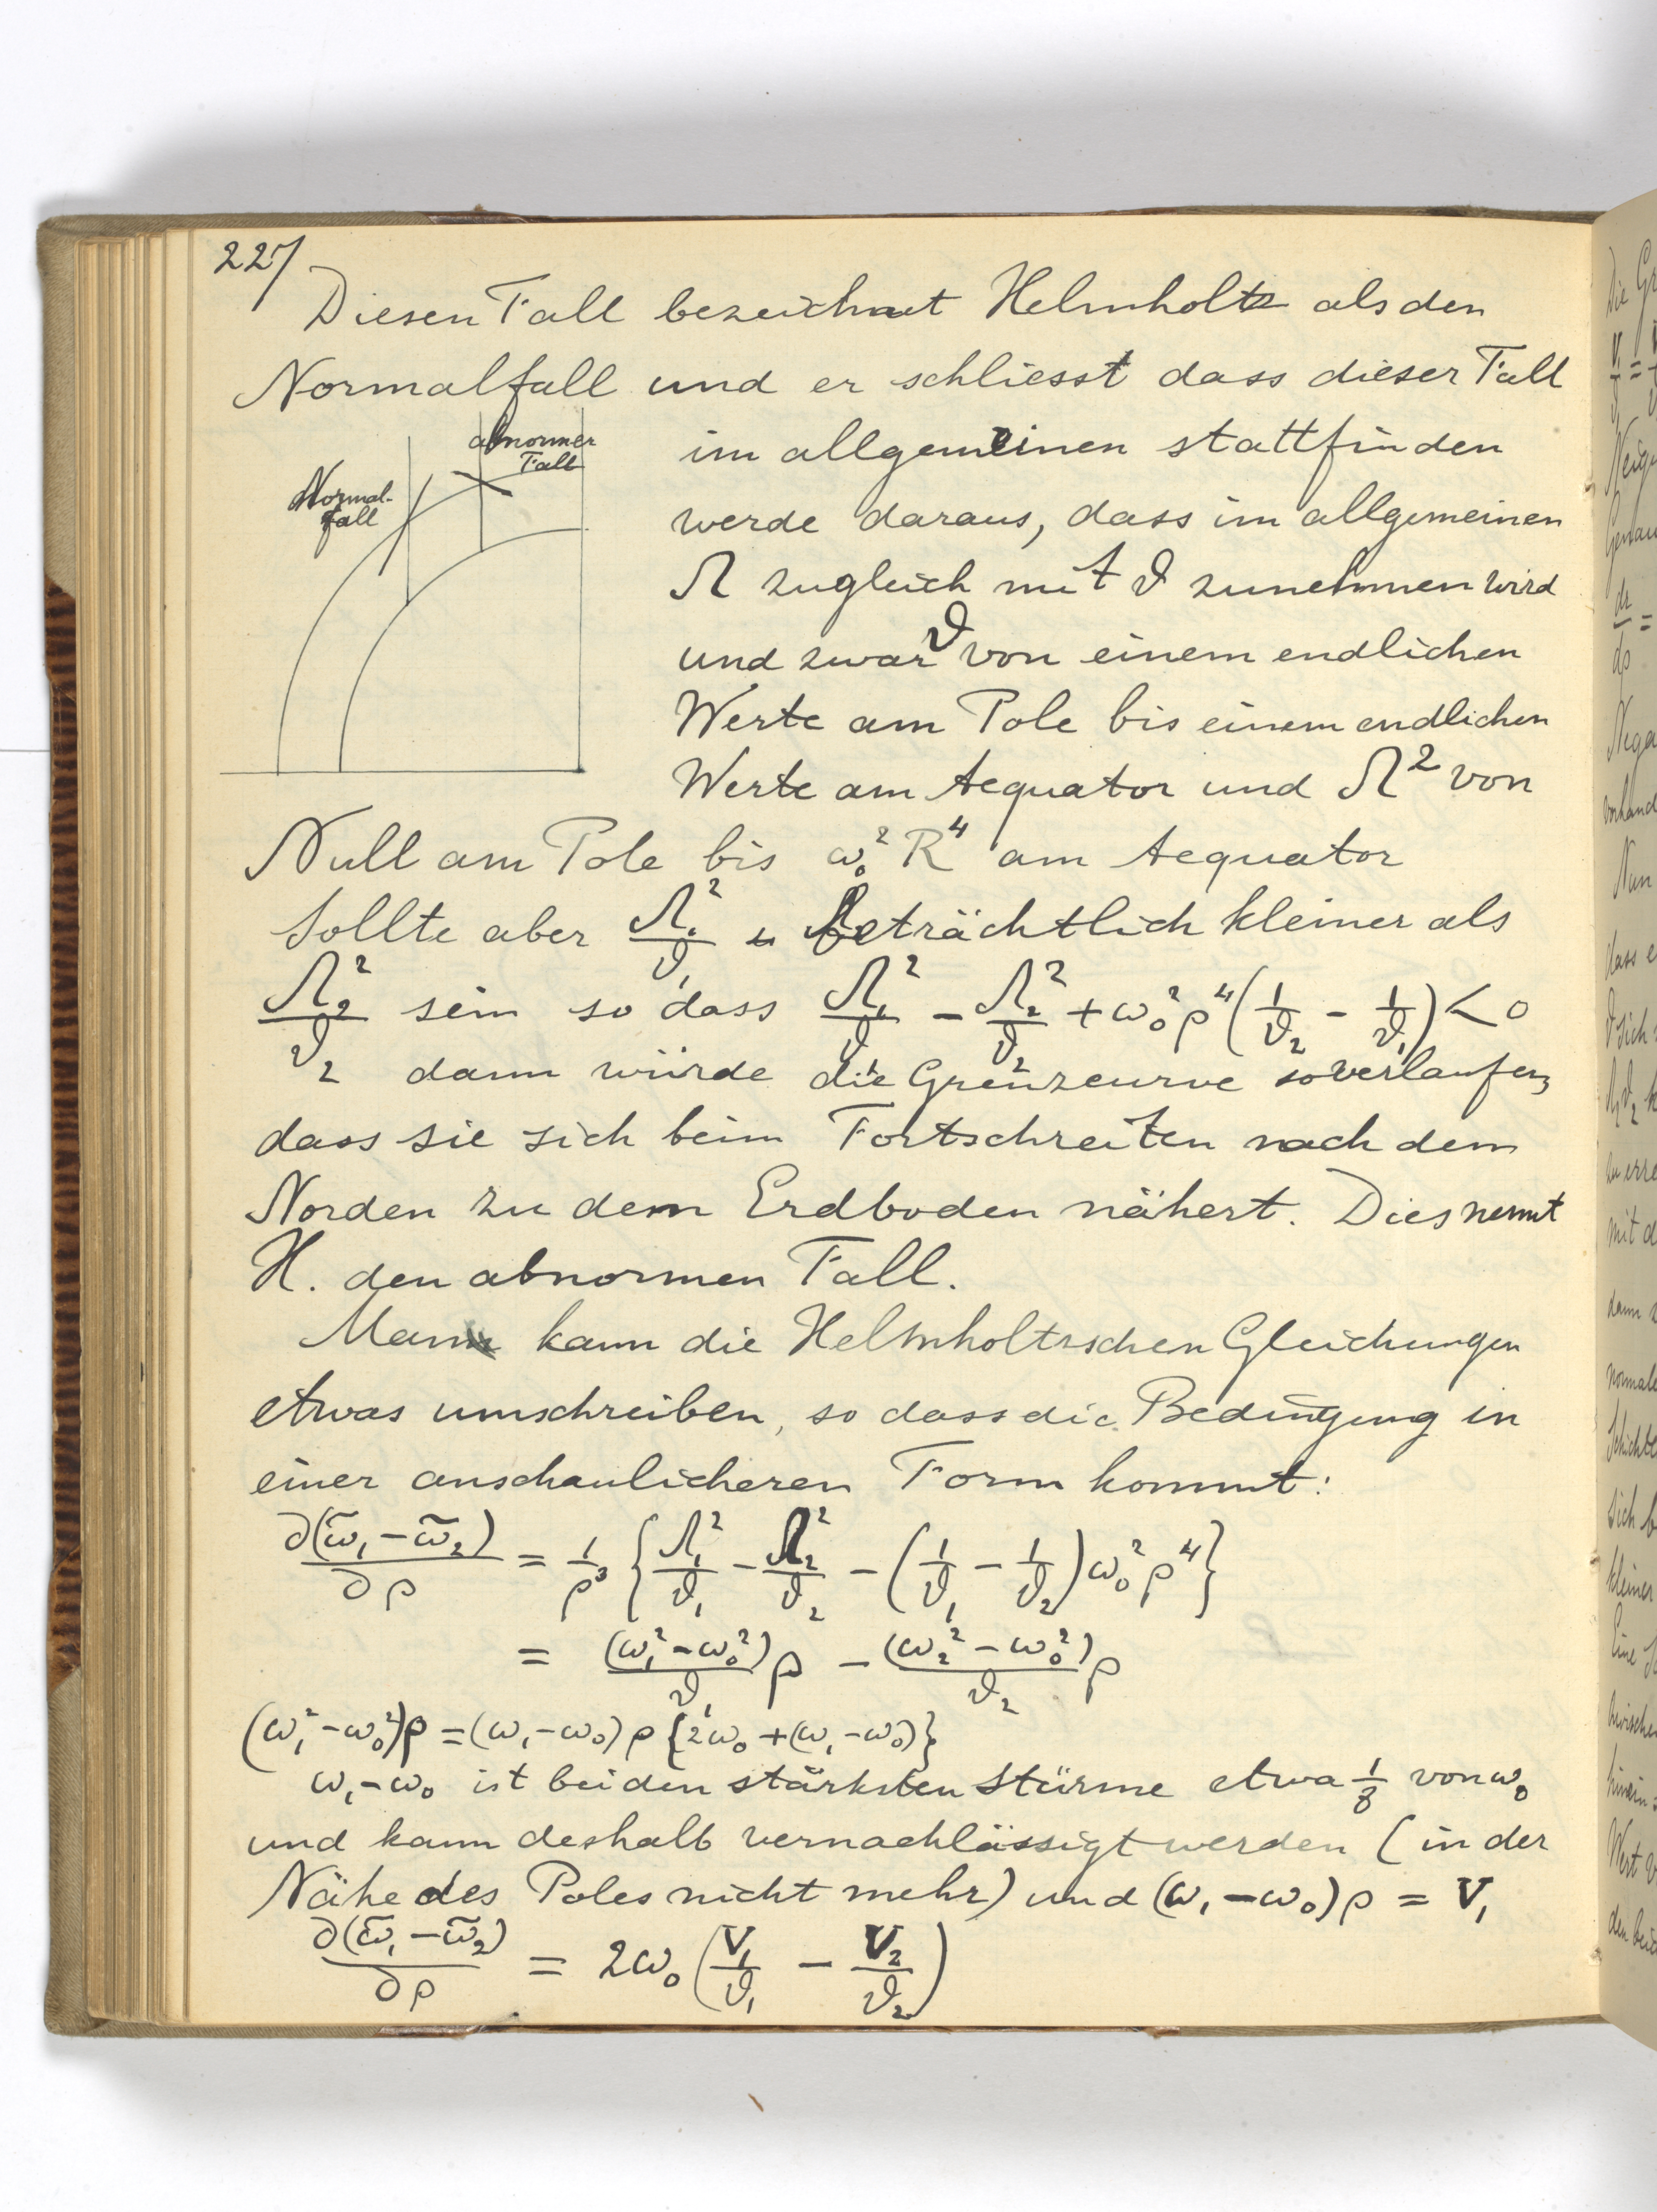 227
Diesen Fall bezeichnet Helmholtz als den
Normalfall und er schliesst dass dieser Fall
abnormer
Fall
Normal-
fall
im allgemeinen stattfinden
werde daraus, dass im allgemeinen
Ω zugleich mit ϑ zunehmen wird
und zwar ϑ von einem endlichen
Werte am Pole bis einem endlichen
Werte am Aequator und Ω² von
Null am Pole bis ω₀² R⁴ am Aequator
Sollte aber Ω₁²/ϑ₁ beträchtlich kleiner als
Ω₂²/ϑ₂ sein so dass Ω₁²/ϑ₁ − Ω₂²/ϑ₂ + ω₀²ρ⁴(1/ϑ₂ − 1/ϑ₁) < 0
dann würde die Grenzcurve so verlaufen,
dass sie sich beim Fortschreiten nach dem
Norden zu dem Erdboden nähert. Dies nennt
H. den abnormen Fall.
Man kann die Helmholtzschen Gleichungen
etwas umschreiben, so dass die Bedingung in
einer anschaulicheren Form kommt:
∂(ω̃₁ − ω̃₂)/∂ρ = 1/ρ³ {Ω₁²/ϑ₁ − Ω₂²/ϑ₂ − (1/ϑ₁ − 1/ϑ₂)ω₀²ρ⁴}
= (ω₁² − ω₀²)/ϑ₁ ρ − (ω₂² − ω₀²)/ϑ₂ ρ
(ω₁² − ω₀²)ρ = (ω₁ − ω₀)ρ {2ω₀ + (ω₁ − ω₀)}
ω₁ − ω₀ ist bei den stärksten Stürme etwa 1/8 von ω₀
und kann deshalb vernachlässigt werden (in der
Nähe des Poles nicht mehr) und (ω₁ − ω₀)ρ = V₁
∂(ω̃₁ − ω̃₂)/∂ρ = 2ω₀ (V₁/ϑ₁ − V₂/ϑ₂)